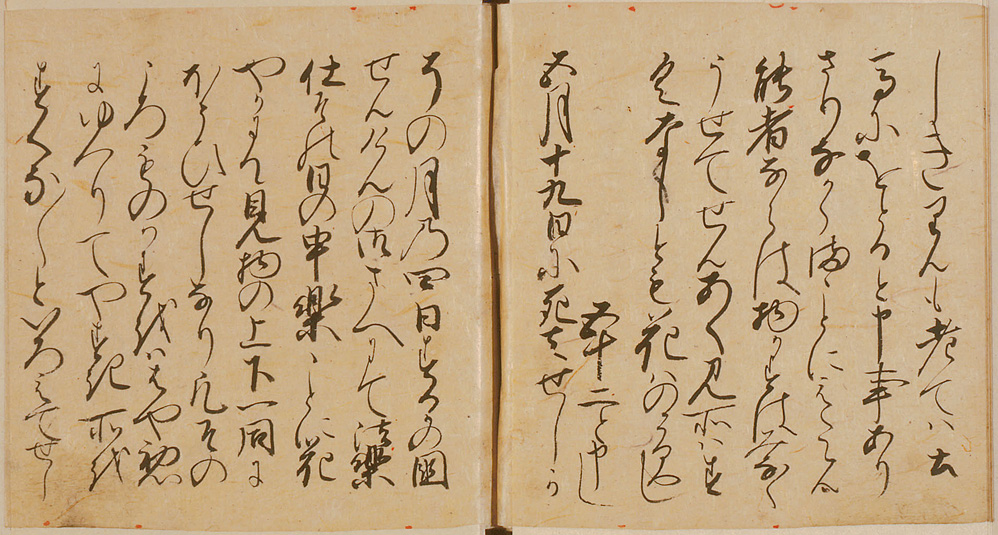 しきりんも老てハ土
馬にをとると申事あり
さりなからまことにえたらん
能者ならは物かすはみなく
うせてせんあく見所ハす
くなしとも花ハのこるへし
五十二と申し
五月十九日に死去せしか
その月乃四日するかの国
せんけんの御まへにて法楽
仕その日の申楽ことに花
やかにて見物の上下一同に
ほうひせしなり凡その
ころものかすをはゝや初心
にゆつりてやすき所を
すくな〱といろへてせし